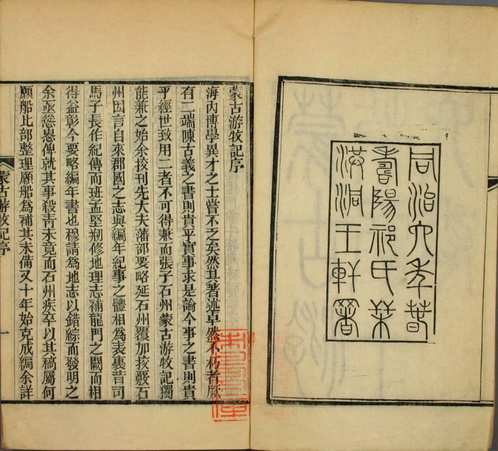 同治六年春
壽陽祁氏栞
洪洞王軒署
蒙古游牧記序
海內博學異才之士嘗不乏矣然其著述卓然不朽者厥
有二端陳古義之書則貴乎實事求是論今事之書則貴
乎經世致用二者不可得兼而張子石州蒙古游牧記獨
能兼之始余挍刊先大夫藩部要略延石州覆加挍覈石
州因言自來郡國之志與編年紀事之體相為表裏昔司
馬子長作紀傳而班孟堅剏修地理志補龍門之闕而相
得益彰今要略編年書也穆請為地志以錯綜而發明之
余亟慫恿俾就其事殺青未竟而石州疾卒以其稿屬何
願船比部整理願船為補其未備又十年始克成編余詳
蒙古游牧記序
一